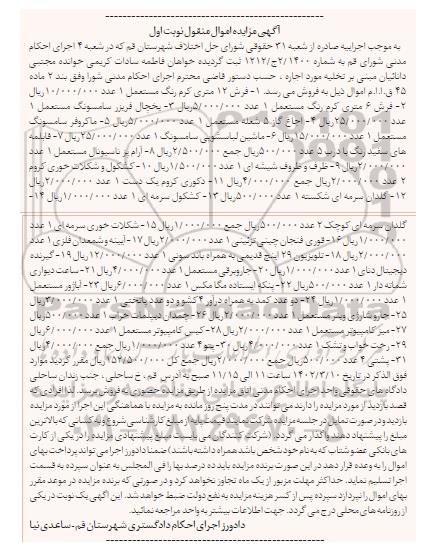 آگهی مزایده اموال منقول نوبت اول
به موجب اجراییه صادره از شعبه ۳۱ حقوقی شورای حل اختلاف شهرستان قم که در شعبه ۴ اجرای احکام
مدنی شورای قم به شماره ۲/۱۴۰۰ج/۱۲۱۲ ثبت گردیده خواهان فاطمه سادات کریمی خوانده مجتبی
دانائیان مبنی بر تخلیه مورد اجاره ، حسب دستور قاضی محترم اجرای احکام مدنی شورا وفق بند ۲ ماده
۴۵ ق.ا.ا.م اموال ذیل به فروش می رسد. ۱- فرش ۱۲ متری کرم رنگ مستعمل ۱ عدد ۱۰/۰۰۰/۰۰۰ریال
۲- فرش ۶ متری کرم رنگ مستعمل ۱ عدد ۵/۰۰۰/۰۰۰ریال ۳- یخچال فریزر سامسونگ مستعمل ۱
عدد ۲۵/۰۰۰/۰۰۰ریال ۴- اجاق گاز ۵ شعله مستعمل ۱ عدد ۵/۰۰۰/۰۰۰ریال ۵- ماکروفر سامسونگ
مستعمل ۱ عدد ۱۵/۰۰۰/۰۰۰ریال ۶- ماشین لباسشویی سامسونگ ۱ عدد ۲۵/۰۰۰/۰۰۰ریال ۷- قابلمه
های سفید رنگ با درب ۵ عدد ۵۰۰/۰۰۰ریال جمع ۲/۵۰۰/۰۰۰ریال ۸- آرام پز ناسیونال مستعمل ۱ عدد
۲/۰۰۰/۰۰۰ریال ۹- ظرف و ظروف شیشه ای ۱ عدد ۱/۵۰۰/۰۰۰ریال ۱۰- کشکول و شکلات خوری کروم
۲ عدد ۲/۰۰۰/۰۰۰ریال جمع ۴/۰۰۰/۰۰۰ریال ۱۱- دکوری کروم یک دست ۱ عدد ۲/۰۰۰/۰۰۰ریال
۱۲- گلدان سرمه ای شکسته ۱ عدد ۵۰۰/۰۰۰ریال ۱۳- کشکول سرمه ای ۱ عدد ۱/۰۰۰/۰۰۰ریال ۱۴-
گلدان سرمه ای کوچک ۲ عدد ۵۰۰/۰۰۰ریال جمع ۱/۰۰۰/۰۰۰ریال ۱۵- شکلات خوری سرمه ای ۱ عدد
۱/۰۰۰/۰۰۰ریال ۱۶- قوری فنجان چینی تزئینی ۱ عدد ۲/۰۰۰/۰۰۰ریال ۱۷- آیینه و شمعدان فلزی ۱ عدد
۲/۰۰۰/۰۰۰ریال ۱۸- تلویزیون ۲۹ اینچ قدیمی به همراه باند سونی ۱ عدد ۱۲/۰۰۰/۰۰۰ریال ۱۹- گیرنده
دیجیتال دنای ۱ عدد ۱/۰۰۰/۰۰۰ریال ۲۰- جاروبرقی مستعمل ۱ عدد ۴/۰۰۰/۰۰۰ریال ۲۱- ساعت دیواری
شماته دار ۱ عدد ۵۰۰/۰۰۰ریال ۲۲- پنکه ایستاده مگا مکس ۱ عدد ۶/۰۰۰/۰۰۰ریال ۲۳- آباژور مستعمل
۱ عدد ۱/۰۰۰/۰۰۰ریال ۲۴- دو عدد کمد به همراه دراور ۴ کشو و دو عدد پاتختی ۱ عدد ۳/۰۰۰/۰۰۰ریال
۲۵- جارو شارژی ویتر مستعمل ۱ عدد ۲/۰۰۰/۰۰۰ریال ۲۶- چمدان دیپلمات خراب ۱ عدد ۵۰۰/۰۰۰ریال
۲۷- میز کامپیوتر مستعمل ۱ عدد ۲/۰۰۰/۰۰۰ریال ۲۸- کیس کامپیوتر مستعمل ۱ عدد ۶/۰۰۰/۰۰۰ریال
۲۹- رخت خواب و تشک ۱ عدد ۴/۰۰۰/۰۰۰ریال ۳۰- پتو ۴ عدد ۱/۰۰۰/۰۰۰ریال جمع ۴/۰۰۰/۰۰۰ریال
۳۱- پشتی ۴ عدد ۵۰۰/۰۰۰ریال جمع ۲/۰۰۰/۰۰۰ریال جمع کل ۱۵۲/۵۰۰/۰۰۰ریال مقرر گردید موارد
فوق الذکر در تاریخ ۱۴۰۲/۳/۱۰ ساعت ۱۱ الی ۱۱/۱۵ صبح به آدرس قم، خ ساحلی ، جنب زندان ساحلی
دادگاه های حقوقی واحد اجرای احکام مدنی اتاق مزایده از طریق مزایده حضوری به فروش برسد. لذا افرادی که
قصد بازدید از مورد مزایده را دارند می توانند در مدت پنج روز مانده به مزایده با هماهنگی این اجرا از مورد مزایده
بازدید و در صورت تمایل در جلسه مزایده شرکت نمایند قیمت پایه از مبلغ کارشناسی شروع و به کسانی که بالاترین
مبلغ را پیشنهاد دهند واگذار می گردد. (شرکت کنندگان می بایست مبلغ پیشنهادی مزایده را در یکی از کارت
های بانکی عضو شتاب که به نام خود شخص باشد همراه داشته باشند) ضمنا دادورز اجرا می تواند پرداخت بهای
اموال را به وعده قرار دهد در این صورت برنده مزایده باید ده درصد بها را فی المجلس به عنوان سپرده به قسمت
اجرا تسلیم نماید. حداکثر مهلت مزبور از یک ماه تجاوز نخواهد کرد و در صورتی که برنده مزایده در موعد مقرر
بهای اموال را نپردازد سپرده پس از کسر هزینه مزایده به نفع دولت ضبط خواهد شد. این آگهی یک نوبت در یکی
از روزنامه های محلی درج می گردد. جهت اطلاعات بیشتر به واحد مراجعه نمائید.
دادورز اجرای احکام دادگستری شهرستان قم- ساعدی نیا